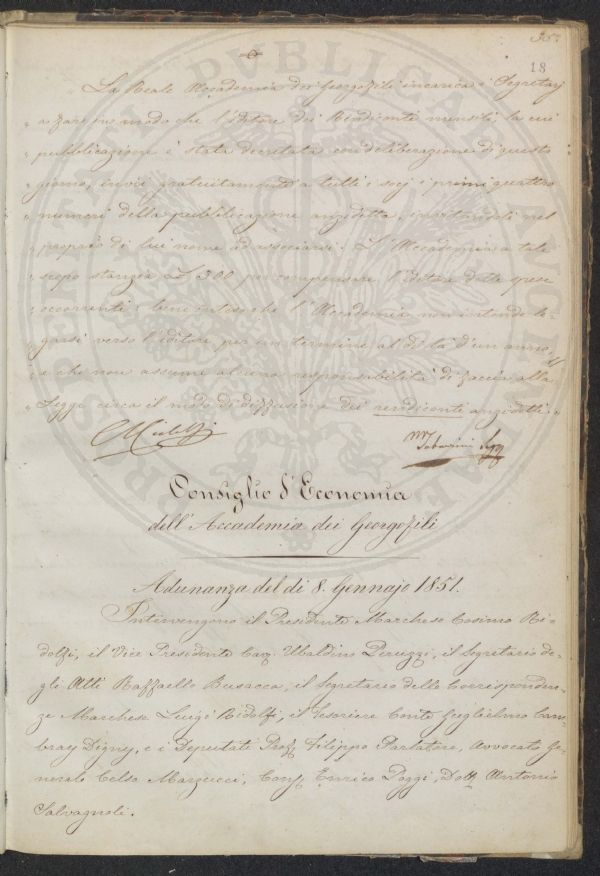 35.
18
La Reale Accademia dei Georgofili incarica i Segretarj
" a fare in modo che l'editore dei Rendiconti mensili, la cui
" pubblicazione è stata decretata con deliberazione di questo
" giorno, invii gratuitamente a tutti i socj i primi quattro
" numeri della pubblicazione anzidetta, invitandoli nel
" proprio di lui nome ad associarsi. L'Accademia a tale
" scopo stanzia L. 300 per compensare l'editore delle spese
" occorrenti: bene inteso che l'Accademia non intende le-
" garsi verso l'editore per un termine al di là d'un anno,
" e che non assume alcuna responsabilità di faccia alla
" Legge circa il modo di diffusione dei rendiconti anzidetti. "
C Ridolfi
M Tabarrini Segr
Consiglio d'Economia
dell'Accademia dei Georgofili
Adunanza del dì 8. Gennajo 1851.
Intervengono il Presidente Marchese Cosimo Ri-
dolfi, il Vice Presidente Cav. Ubaldino Peruzzi, il Segretario de-
gli Atti Raffaello Busacca, il Segretario delle Corrisponden-
ze Marchese Luigi Ridolfi, il Tesoriere Conte Guglielmo Cam-
bray Digny, e i Deputati Prof. Filippo Parlatore, Avvocato Ge-
nerale Celso Marzucci, Cons. Enrico Poggi, Dott. Antonio
Salvagnoli.
PROSPERITATI PUBLICAE AUGENDAE